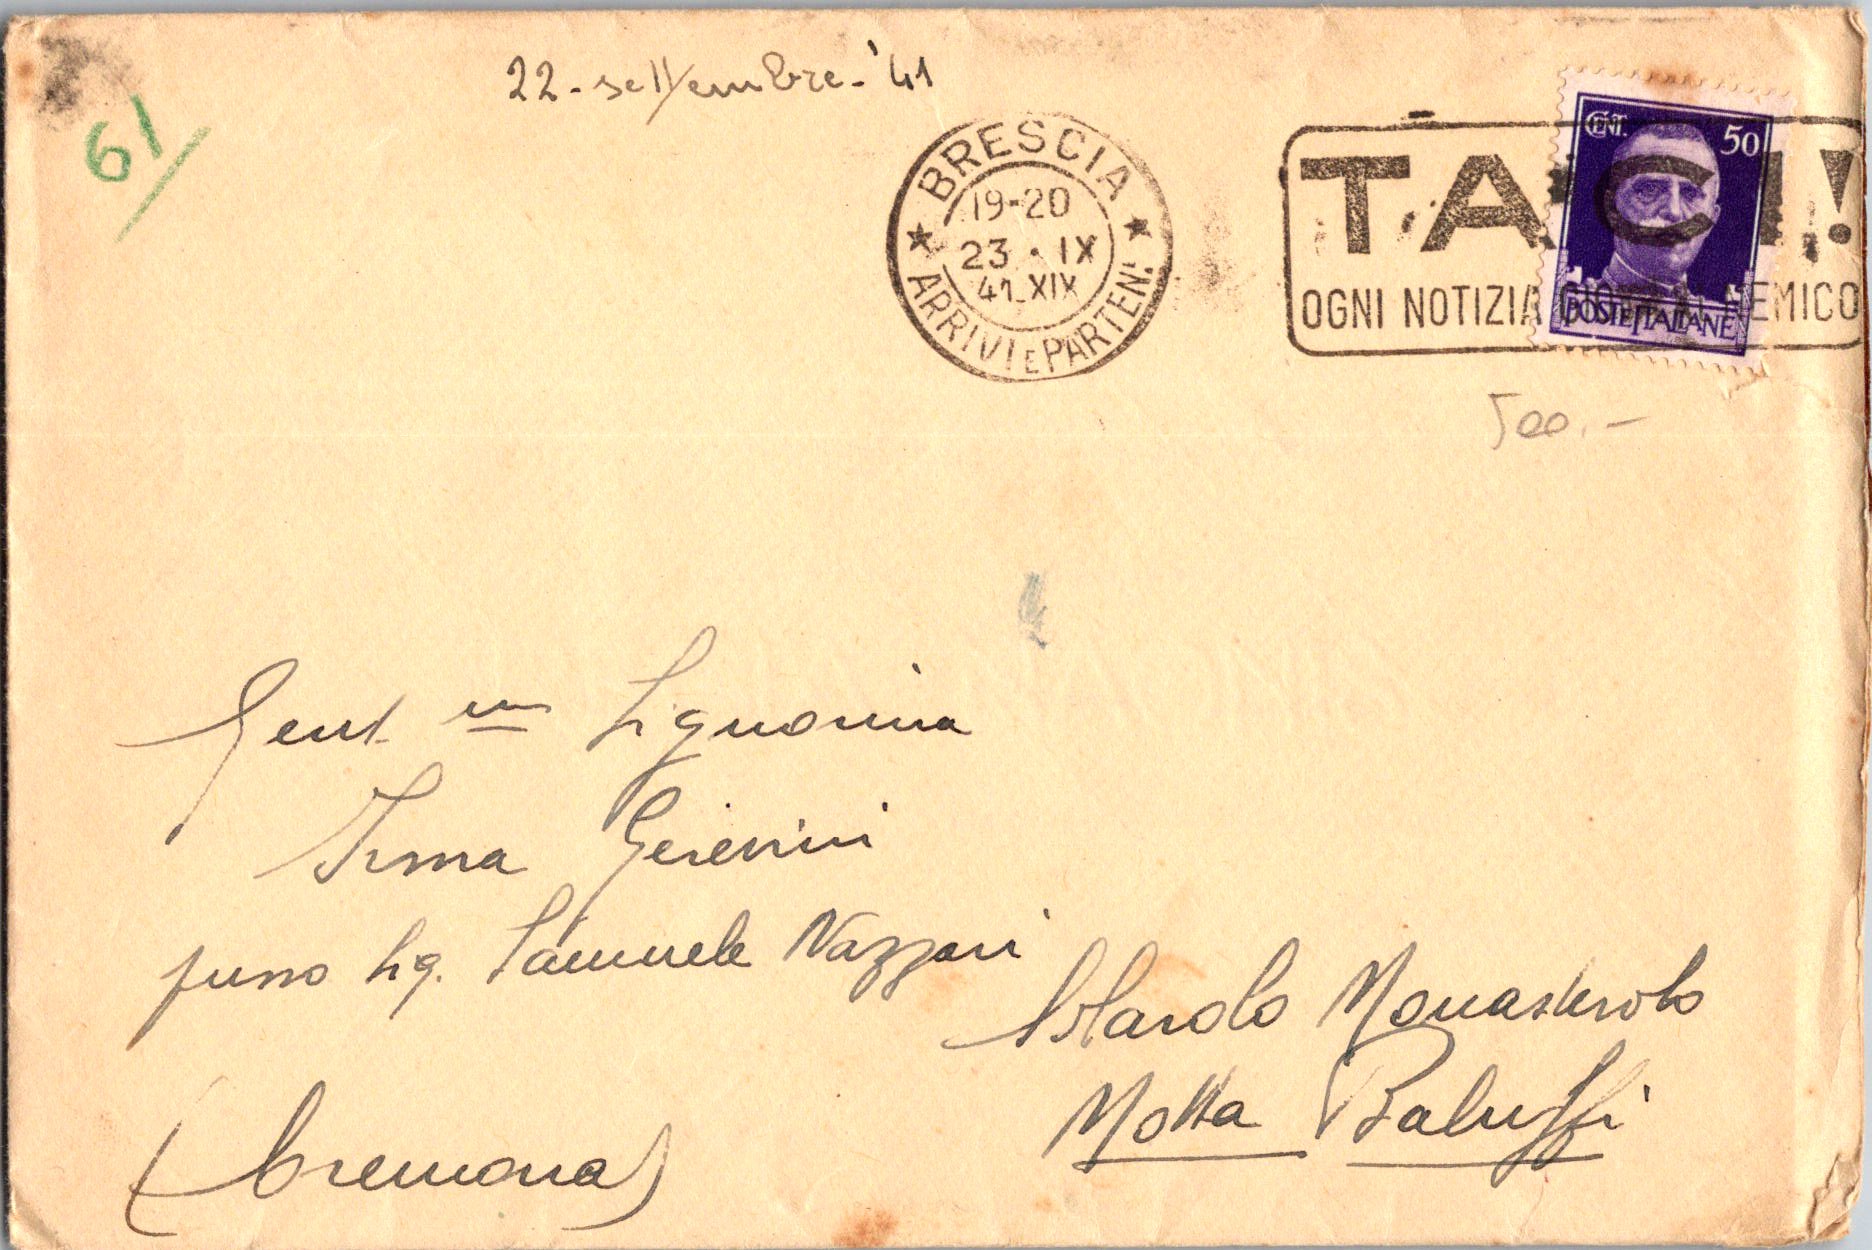 22 - settembre - '41
61
BRESCIA
19-20
23 · IX
41 XIX
ARRIVI E PARTEN.
TACI!
OGNI NOTIZIA GIOVA AL NEMICO
CENT. 50
POSTE ITALIANE
500.-
Gent. ma Signorina
Irma Gerevini
presso Sig. Samuele Nazzari
Solarolo Monasterolo
Motta Baluffi
(Cremona)